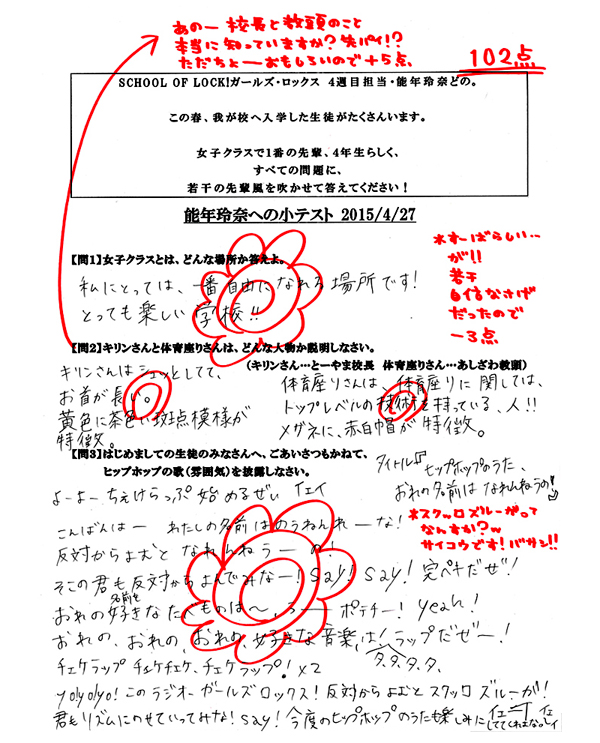 あのー校長と教頭のこと
本当に知っていますか？先パイ!?
ただちょーおもしろいので＋5点、
102点
SCHOOL OF LOCK!ガールズ・ロックス 4週目担当・能年玲奈どの。
この春、我が校へ入学した生徒がたくさんいます。
女子クラスで1番の先輩、4年生らしく、
すべての問題に、
若干の先輩風を吹かせて答えてください！
能年玲奈への小テスト 2015/4/27
【問1】女子クラスとは、どんな場所か答えよ。
私にとっては、一番自由になれる場所です！
とっても楽しい学校!!
*すーばらしい…
が!!
若干
自信なさげ
だったので
−3点
【問2】キリンさんと体育座りさんは、どんな人物か説明しなさい。
（キリンさん…とーやま校長 体育座りさん…あしざわ教頭）
キリンさんはシュッとしてて、
お首が長い。
黄色に茶色い斑点模様が
特徴。
体育座りさんは、体育座りに関しては、
トップレベルの技術を持っている、人!!
メガネに、赤白帽が特徴。
【問3】はじめましての生徒のみなさんへ、ごあいさつもかねて、
ヒップホップの歌（雰囲気）を披露しなさい。
タイトル『ヒップホップのうた、
おれの名前はなれんねうの』
よーよーちぇけらっぷ始めるぜい イェイ
*スクッロズルーガって
なんすか？w
サイコウです！バサシ!!
こんばんはー わたしの名前はのうねんれーな！
反対からよむと なれんねうーの！
そこの君も反対からよんでみなー！say！say！完ペキだぜ！
おれの名前を好きなたべものは〜、うー ポテチー！yeah！
おれの、おれの、おれの、好きな音楽は！ラップだぜー！
タ,タ,タ,タ,
チェケラップ チェケチェケ、チェケラップ！×2
yoyoyo！このラジオーガールズロックス！反対からよむとスクッロズルーガ！
君もリズムにのせていってみな！say！今度のヒップホップのうたも楽しみに
しててくれよな。イェイ